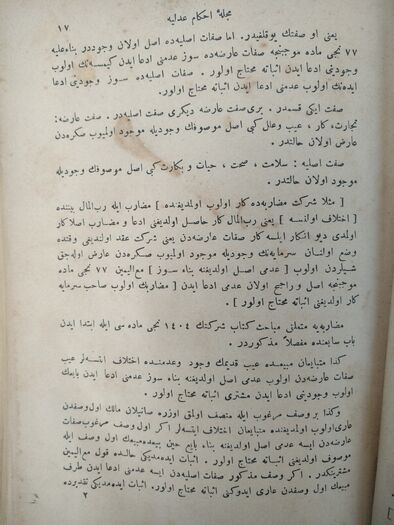 مجلۀ احكام عدليه
١٧
يعنى او صفتك يوقلغيدر. اما صفات اصليه‌ده اصل اولان وجوددر بناءً عليه
٧٧ نجى ماده موجبنجه صفات عارضه‌ده سوز عدمنى ادعا ايدن كيمسه‌نك اولوب
وجودينى ادعا ايدن اثباته محتاج اولور. صفات اصليه‌ده سوز وجودينى ادعا
ايده‌نك اولوب عدمنى ادعا ايدن اثباته محتاج اولور.
صفت ايكى قسمدر. برى صفات عارضه ديكرى صفات اصليه‌در. صفات عارضه:
تجارت، كار، عيب وعلل كبى اصل موصوفك وجوديله موجود اولميوب صكره‌دن
عارض اولان حالتدر.
صفت اصليه: سلامت، صحت، حيات و بكارت كبى اصل موصوفك وجوديله
موجود اولان حالتدر.
[ مثلا شركت مضاربه‌ده كار اولوب اولمديغنده ] مضارب ايله رب‌المال بيننده
[ اختلاف اولنسه ] يعنى رب‌المال كار حاصل اولديغنى ادعا و مضارب اصلا كار
اولمدى ديو انكار ايلسه كار صفات عارضه‌دن يعنى شركت عقد اولنديغى وقتده
وضع اولنان سرمايه‌نك وجوديله موجود اولميوب صكره‌دن عارض اوله‌جق
شيلردن اولوب [ عدمى اصل اولديغنه بناء سوز ] مع‌اليمين ٧٧ نجى ماده
موجبنجه اصل و راجح اولان عدمنى ادعا ايدن [ مضاربك اولوب صاحب سرمايه
كار اولديغنى اثباته محتاج اولور ].
مضاربه‌يه متعلق مباحث كتاب شركتك ١٤٠٤ نجى ماده سى ايله ابتدا ايدن
باب سابعنده مفصلاً مذكوردر.
كذا متبايعان مبيعده عيب قديمك وجود وعدمنده اختلاف ايتسه‌لر عيب
صفات عارضه‌دن اولوب عدمى اصل اولديغنه بناء سوز عدمنى ادعا ايدن بايعك
اولوب وجودينى ادعا ايدن مشترى اثباته محتاج اولور.
وكذا بر وصف مرغوب ايله متصف اولمق اوزره صاتيلان مالك اول وصفدن
عارى اولوب اولمديغنده متبايعان اختلاف ايتسه‌لر اكر اول وصف مرغوب صفات
عارضه‌دن ايسه عدمى اصل اولديغنه بناء بايع حين بيعده مبيعك اول وصف ايله
موصوف اولديغنى اثباته محتاج اولور. اثبات ايده‌مديكى حالده قول مع‌اليمين
مشترينكدر. اكر وصف مذكور صفات اصليه‌دن ايسه عدمنى ادعا ايدن طرف
مبيعك اول وصفدن عارى ايدوكنى اثباته محتاج اولور. اثبات ايده‌مديكى تقديرده
٢